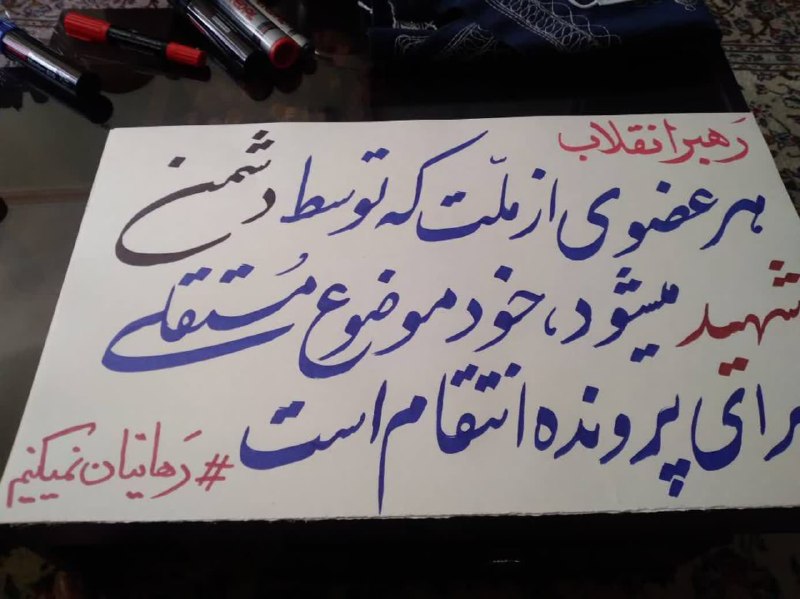 رَهبر انقلاب
هر عضوی از ملّت که توسط دشمن
شهید میشود، خود موضوع مُستقلی
برای پرونده انتقام است
#رَهاتیان نمیکنیم